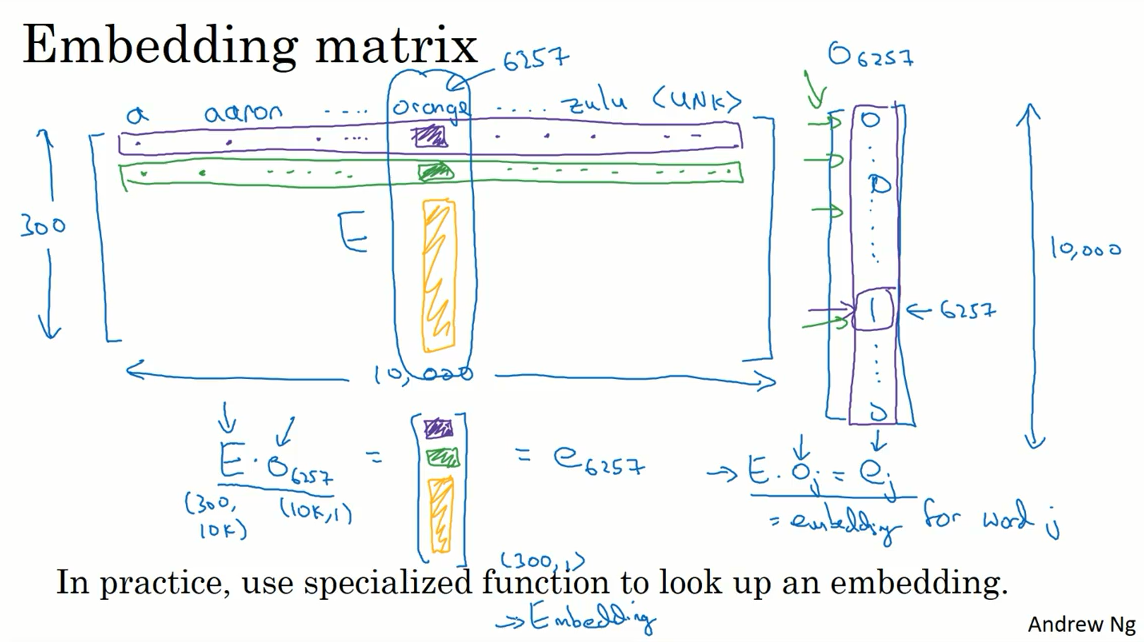 Embedding matrix
6257
O6257
a aaron ..... orange ..... zulu <UNK>
300
E
0
0
1
← 6257
0
10,000
10,000
E · O6257 = [ ] = e6257
(300, 10K) (10K, 1)
(300, 1)
→ E · Oj = ej
= embedding for word j
In practice, use specialized function to look up an embedding.
→ Embedding
Andrew Ng